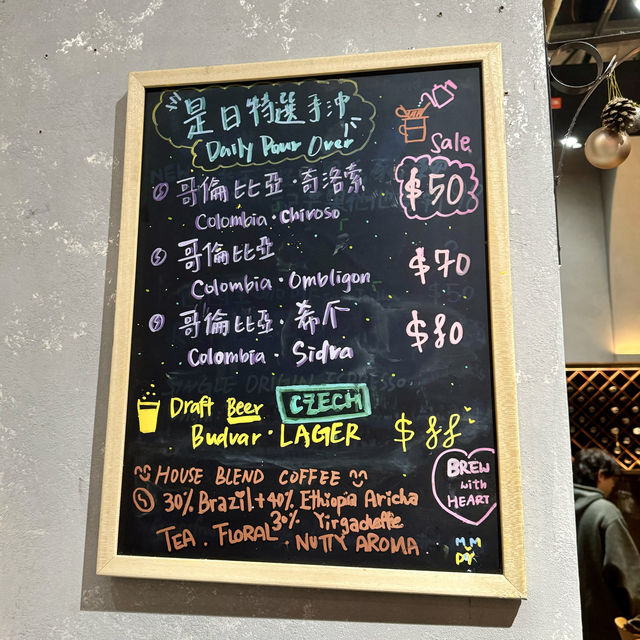 是日特選手沖
Daily Pour Over
Sale
哥倫比亞·奇洛索 $50
Colombia · Chiroso
哥倫比亞 $70
Colombia · Ombligon
哥倫比亞·希爪 $80
Colombia · Sidra
Draft Beer CZECH
Budvar · LAGER $88
HOUSE BLEND COFFEE
30% Brazil + 40% Ethiopia Aricha
30% Yirgacheffe
TEA . FLORAL . NUTTY AROMA
BREW
with
HEART